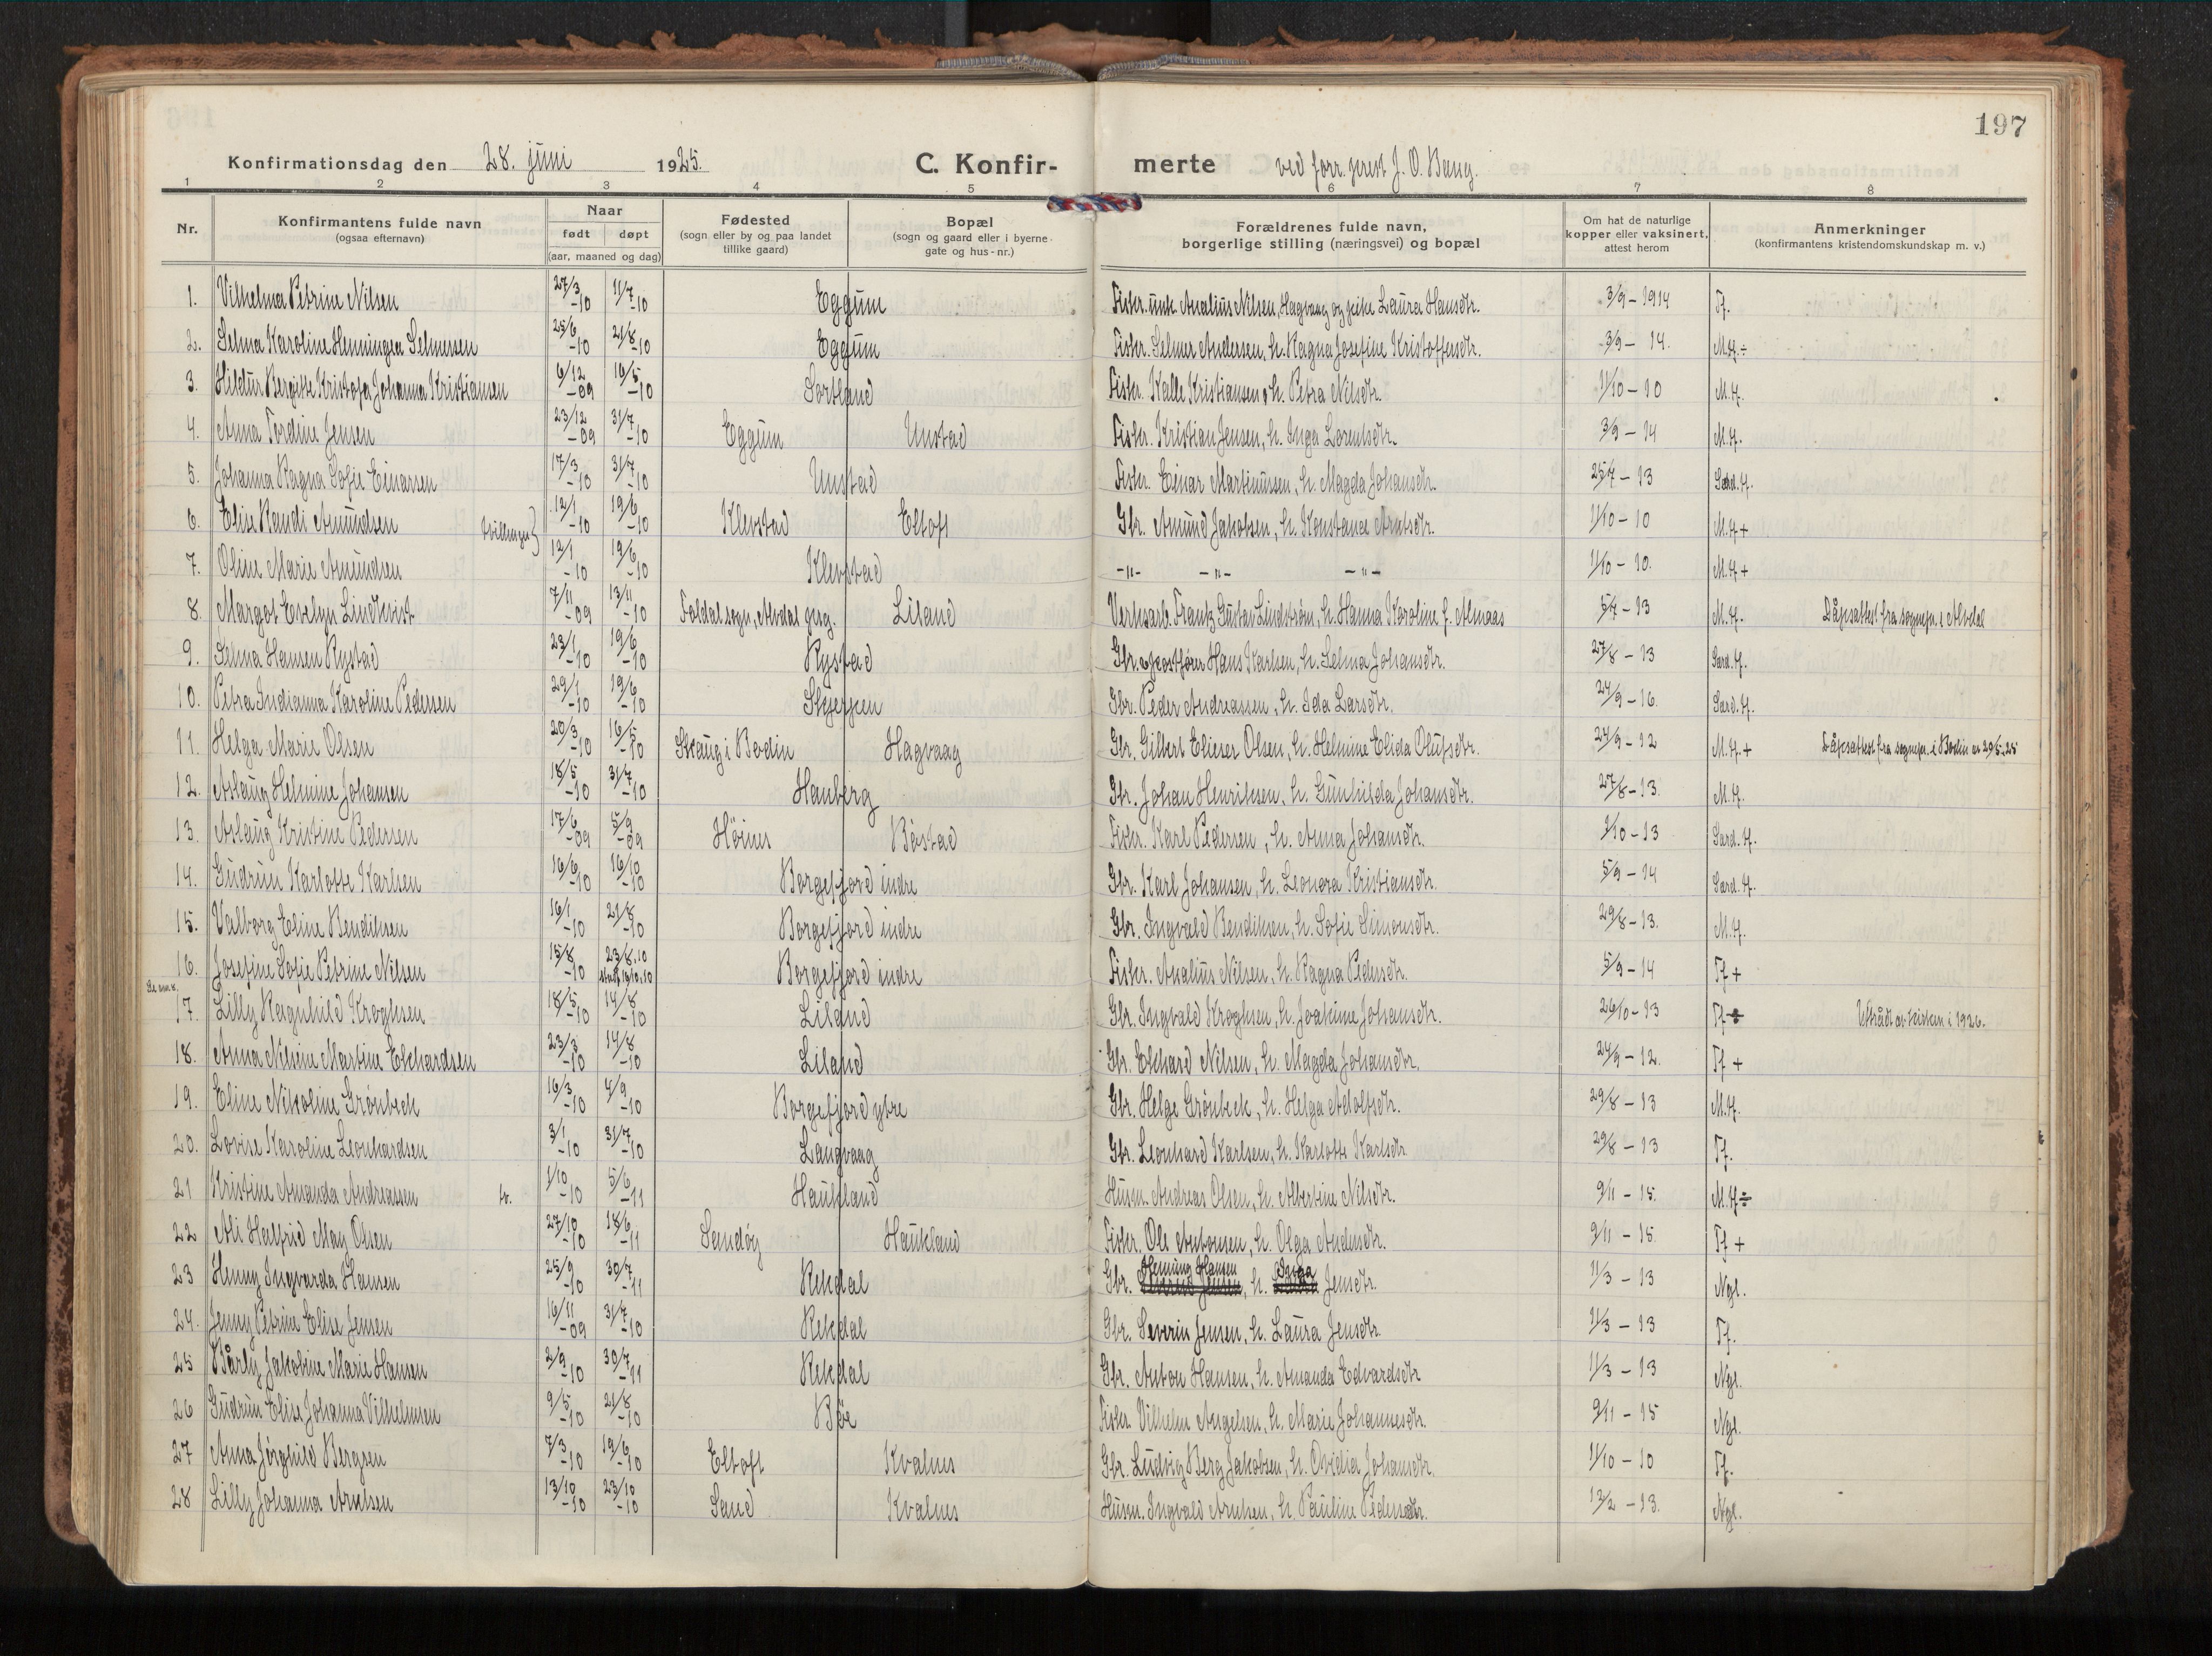 197
Konfirmationsdag den 28. juni 1925. C. Konfir- merte ved forr. prest J. O. Bang.
1 2 3 4 5 6 7 8
Nr. Konfirmantens fulde navn (ogsaa efternavn) Naar født døpt (aar, maaned og dag) Fødested (sogn eller by og paa landet tillike gaard) Bopæl (sogn og gaard eller i byerne gate og hus-nr.) Forældrenes fulde navn, borgerlige stilling (næringsvei) og bopæl Om hat de naturlige kopper eller vaksinert, attest herom Anmerkninger (konfirmantens kristendomskundskap m. v.)
1. Vilhelma Petrine Nilsen 27/3 -10 11/7 -10 Eggum Fisker. unk. Analius Nilsen, Hagvaag og pike Laura Hansdtr. 3/9 - 1914 Tf.
2. Selma Karoline Henningea Selmersen 25/6 -10 21/8 -10 Eggum Fisker. Selmer Andersen, h. Ragna Josefine Kristoffersdtr. 3/9 - 14. M.H.÷
3. Hildur Bergitte Kristofa Johanna Kristiansen 6/12 -09 16/5 -10 Sortland Fisker. Kalle Kristiansen, h. Petra Nilsdtr. 11/10 - 10 M.H.
4. Anna Tordine Jensen 23/12 -09 31/7 -10 Eggum Unstad Fisker. Kristian Jensen, h. Inga Lorentsdtr. 3/9 - 14 M.H.
5. Johanna Ragna Sofie Einarsen 17/3 -10 31/7 -10 Unstad Fisker. Einar Martinussen, h. Magda Johansdtr. 25/7 - 13 Særd.H.
6. Elise Randi Amundsen tvillinger} 12/1 -10 19/6 -10 Klevstad Eltoft Gbr. Amund Jakobsen, h. Konstance Arntsdtr. 11/10 - 10 M.H+
7. Oline Marie Amundsen 12/1 -10 19/6 -10 Klevstad -"- -"- -"- 11/10 - 10. M.H+
8. Margot Evelyn Lindkvist 7/11 -09 13/11 -10 Foldal sogn, Alvdal prg. Liland Verksarb. Frantz Gustav Lindström, h. Hanna Karoline f. Almaas 5/7 - 13 M.H. Dåpsattest fra sognepr. i Alvdal
9. Selma Hansen Rystad 23/1 -10 19/6 -10 Rystad Gbr. og postfører Hans Karlsen, h. Selma Johansdtr. 27/8 - 13 Særd.H.
10. Petra Indianna Karoline Pedersen 29/1 -10 19/6 -10 Skjerpen Gbr. Peder Andreassen, h. Ida Larsdtr. 24/9 - 16. Særd.H.
11. Helga Marie Olsen 20/3 -10 16/5 -10 Skaug i Bodin Hagvaag Gbr. Gilbert Elieser Olsen, h. Helmine Elida Olufsdtr. 24/9 - 12 M.H+ Dåpsattest fra sognepr. i Bodin av 29/5.25
12. Aslaug Helmine Johansen 18/5 -10 31/7 -10 Hanberg Gbr. Johan Henriksen, h. Gunhilda Johansdtr. 27/8 - 13. M.H.
13. Aslaug Kristine Pedersen 17/6 -09 5/9 -09 Høines Bøstad Fisker. Karl Pedersen, h. Anna Johansdtr. 1/10 - 13 Særd.H.
14. Gudrun Karlotte Karlsen 16/6 -10 16/10 -10 Borgefjord indre Gbr. Karl Johansen, h. Leonora Kristiansdtr. 5/9 - 14 Særd.H.
15. Valborg Eline Bendiksen 16/1 -10 21/8 -10 Borgefjord indre Gbr. Ingvald Bendiksen, h. Sofie Simonsdtr. 29/8 - 13. M.H.
16. Josefine Sofie Petrine Nilsen 15/8 -10 23/8.10 16/10.10 Borgefjord indre Fisker. Analius Nilsen, h. Ragna Pedersdtr. 5/9 - 14 Tf+
Se anm.
17. Lilly Ragnhild Kroghsen 18/5 -10 14/8 -10 Liland Gbr. Ingvald Kroghsen, h. Joakime Johansdtr. 26/10 - 13 Tf+ Utrådt av kirken i 1926.
18. Anna Nilsine Martine Ekhardsen 23/3 -10 14/8 -10 Liland Gbr. Ekhard Nilsen, h. Magda Johansdtr. 24/9 - 12. Tf+
19. Eline Nikoline Grönbeck 16/3 -10 4/9 -10 Borgefjord ytre Gbr. Helge Grönbeck, h. Helga Adolfsdtr. 29/8 - 13 M.H.
20. Lovise Karoline Leonhardsen 3/1 -10 31/7 -10 Langvaag Gbr. Leonhard Karlsen, h. Karlotte Karlsdtr. 29/8 - 13 Tf.
21 Kristine Amanda Andreassen tv. 1/10 -10 5/6 -11 Haukland Husm. Andreas Olsen, h. Albertine Nilsdtr. 9/11 - 15. M.H÷
22 Ali Halfrid May Olsen 27/10 -10 18/6 -11 Sandøy Haukland Fisker. Ole Antonsen, h. Olga Andersdtr. 9/11 - 15. Tf+
23 Henny Ingvarda Hansen 25/9 -10 30/7 -11 Rekdal Gbr. Henning Hansen, h. Inga Jensdtr. 11/3 - 13 Ngl.
24. Jenny Petrine Elise Jensen 16/11 -09 31/7 -10 Rekdal Gbr. Severin Jensen, h. Laura Jensdtr. 11/3 - 13 Tf.
25 Bårly Jakobine Marie Hansen 2/9 -10 30/7 -11 Rekdal Gbr. Anton Hansen, h. Amanda Edvardsdtr 11/3 - 13 Ngl.
26 Gudrun Elise Johanna Vilhelmsen 9/5 -10 21/8 -10 Bøe Fisker. Vilhelm Angelsen, h. Marie Johannesdtr. 9/11 - 15 Ngl.
27 Anna Jørghild Bergsen 7/3 -10 19/6 -10 Eltoft Kvalnes Gbr. Ludvig Berg Jakobsen, h. Ovidia Johansdtr. 11/10 - 10 Tf.
28 Lilly Johanna Arntsen 13/10 -10 23/10 -10 Sand Kvalnes Husm. Ingvald Arntsen, h. Pauline Pedersdtr. 12/2 - 13. Ngl.